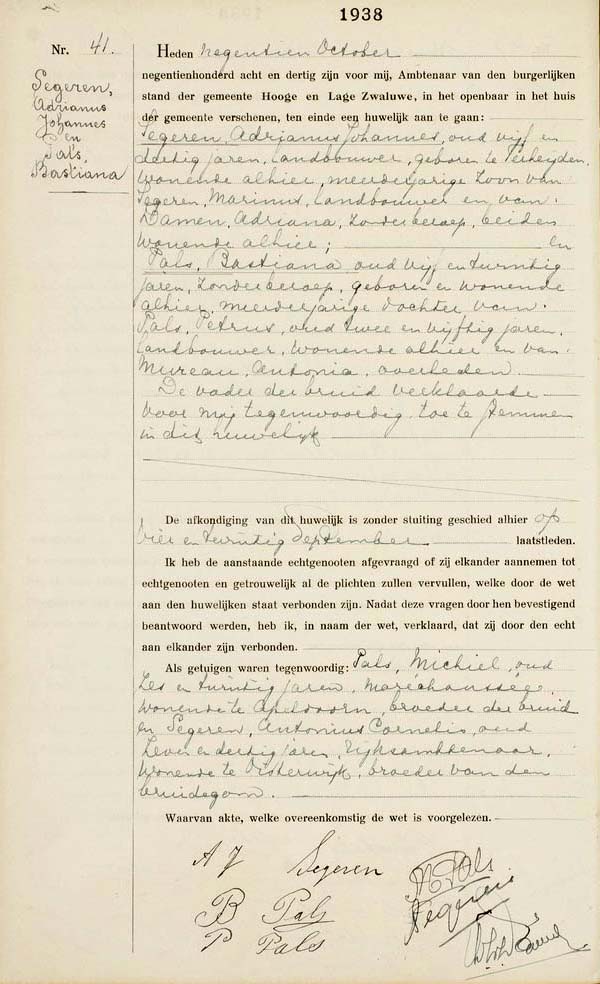 1938
Nr. 41.
Segeren,
Adrianus
Johannes
en
Pals,
Bastiana
Heden negentien October
negentienhonderd acht en dertig zijn voor mij, Ambtenaar van den burgerlijken
stand der gemeente Hooge en Lage Zwaluwe, in het openbaar in het huis
der gemeente verschenen, ten einde een huwelijk aan te gaan:
Segeren, Adrianus Johannes, oud vijf en
dertig jaren, landbouwer, geboren te Terheyden,
wonende alhier, meerderjarige zoon van
Segeren, Marinus, landbouwer en van
Damen, Adriana, zonder beroep, beiden
wonende alhier; en
Pals, Bastiana oud vijf en twintig
jaren, zonder beroep, geboren en wonende
alhier, meerderjarige dochter van
Pals, Petrus, oud twee en vijftig jaren,
landbouwer, wonende alhier en van
Mureau, Antonia, overleden.
De vader der bruid verklaarde
voor mij tegenwoordig toe te stemmen
in dit huwelijk
De afkondiging van dit huwelijk is zonder stuiting geschied alhier op
vier en twintig September laatstleden.
Ik heb de aanstaande echtgenooten afgevraagd of zij elkander aannemen tot
echtgenooten en getrouwelijk al de plichten zullen vervullen, welke door de wet
aan den huwelijken staat verbonden zijn. Nadat deze vragen door hen bevestigend
beantwoord werden, heb ik, in naam der wet, verklaard, dat zij door den echt
aan elkander zijn verbonden.
Als getuigen waren tegenwoordig: Pals, Michiel, oud
zes en twintig jaren, maréchaussée,
wonende te Apeldoorn, broeder der bruid
en Segeren, Antonius Cornelis, oud
zeven en dertig jaren, Rijksambtenaar,
wonende te Oisterwijk, broeder van den
bruidegom.
Waarvan akte, welke overeenkomstig de wet is voorgelezen.
A J Segeren
M Pals
B Pals
Segeren
P Pals